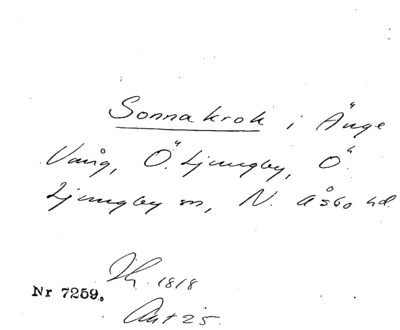 Sonnakrok i Änge
Vång, Ö. Ljungby, Ö.
Ljungby sn, N. Åsbo hd.
1818
Nr 7259.
Akt 25.